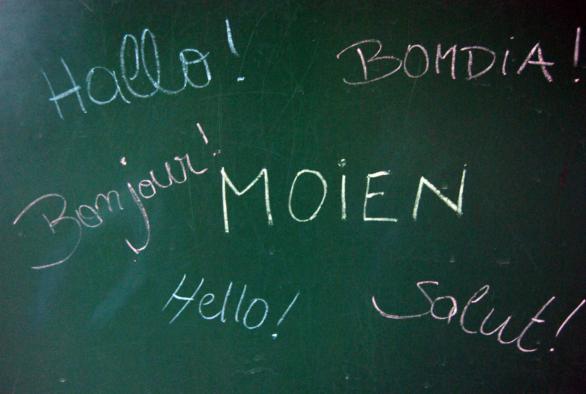 Hallo!
BOMDIA!
Bonjour!
MOiEN
Hello!
Salut!